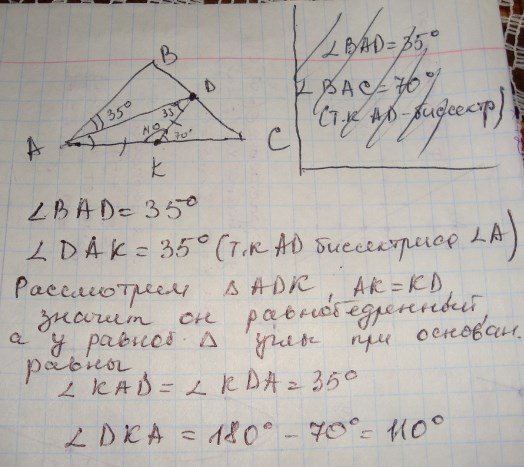 ∠BAD = 35°
∠BAC = 70°
(т.к AD - биссектр)
B
35°
D
35°
110
70°
A
K
C
∠BAD = 35°
∠DAK = 35° (т.к AD биссектриса ∠A)
Рассмотрим △ADK, AK = KD,
значит он равнобедренный,
а у равноб. △ углы при основан.
равны
∠KAD = ∠KDA = 35°
∠DKA = 180° - 70° = 110°